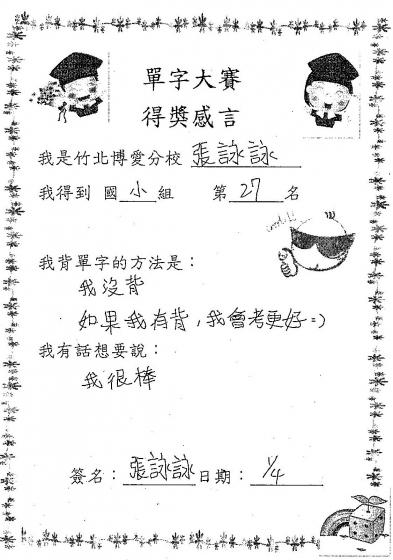 單字大賽
得獎感言
我是竹北博愛分校 張詠詠
我得到 國小組 第 27 名
我背單字的方法是：
我沒背
如果我有背，我會考更好=)
我有話想要說：
我很棒
簽名：張詠詠 日期：1/4